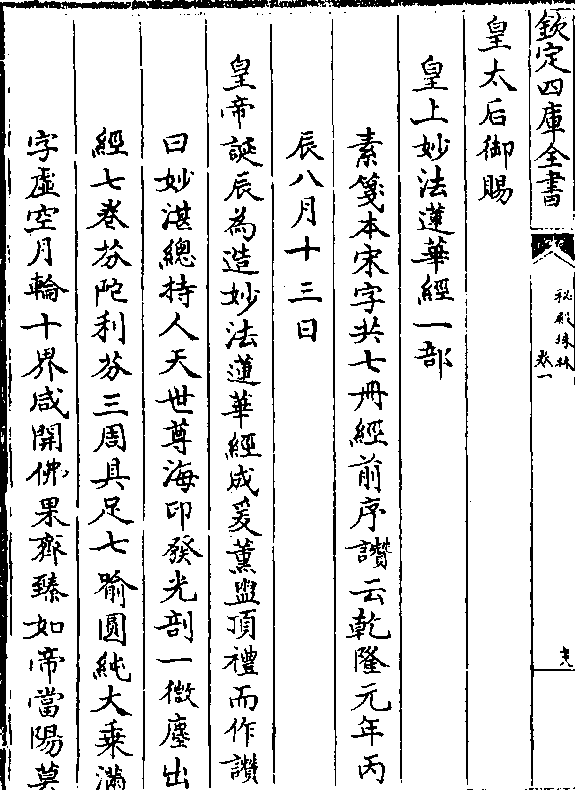 欽定四庫全書
秘殿珠林
卷一
皇太后御賜
皇上妙法蓮華經一部
素箋本宋字共七冊經前序讚云乾隆元年丙
辰八月十三日
皇帝誕辰為造妙法蓮華經成爰薰盥頂禮而作讚
曰妙湛總持人天世尊海印發光剖一微塵出
經七卷芬陀利芬三周具足七喻圓純大乘滿
字虛空月輪十界咸開佛果齊臻如帝當陽莫